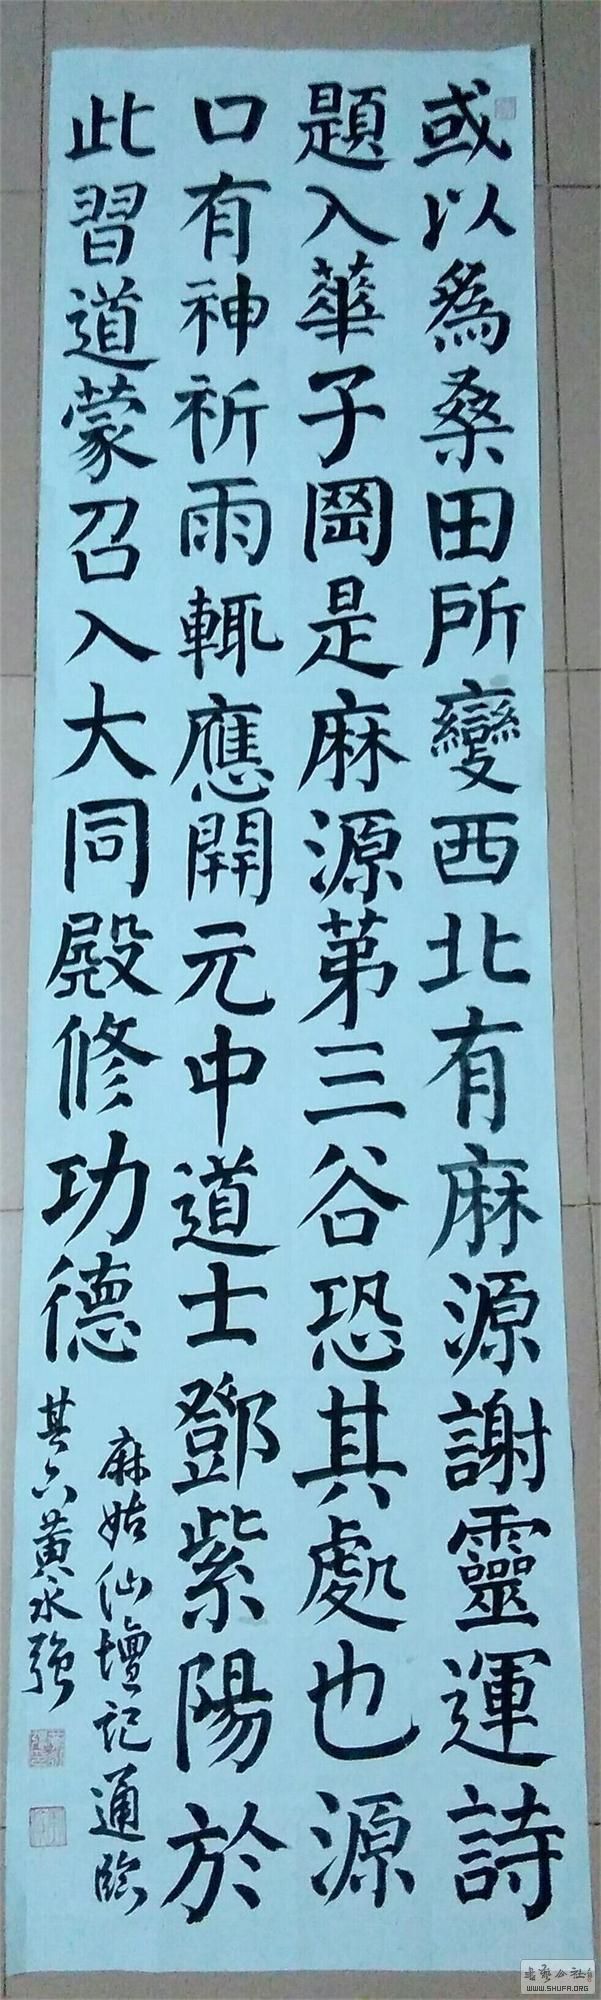 或以為桑田所變西北有麻源謝靈運詩
題入華子岡是麻源第三谷恐其處也源
口有神祈雨輒應開元中道士鄧紫陽於
此習道蒙召入大同殿修功德
麻姑仙壇記通臨
其六黃永強
書藝公社
WWW.SHUFA.ORG